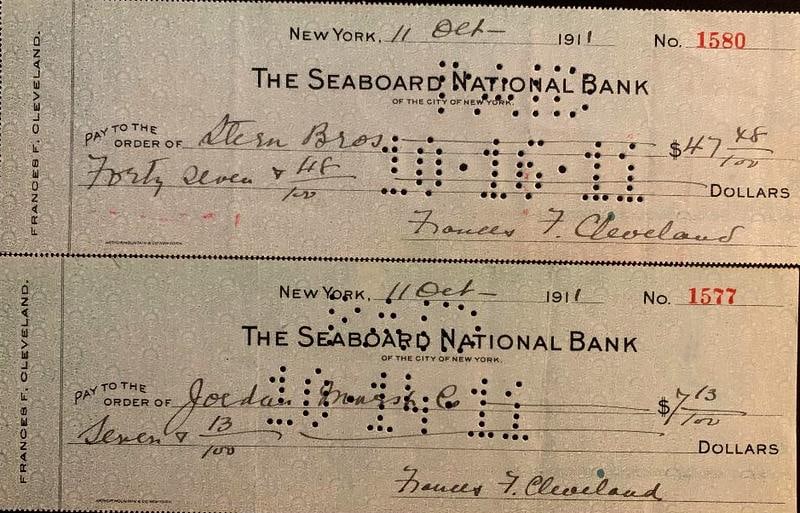 FRANCES F. CLEVELAND.
NEW YORK, 11 Oct 1911 No. 1580
THE SEABOARD NATIONAL BANK
OF THE CITY OF NEW YORK.
PAY TO THE
ORDER OF Stern Bros $47 48/100
Forty seven & 48/100 DOLLARS
10·16·11
Frances F. Cleveland
FRANCES F. CLEVELAND.
NEW YORK, 11 Oct 1911 No. 1577
THE SEABOARD NATIONAL BANK
OF THE CITY OF NEW YORK.
PAY TO THE
ORDER OF Jordan Marsh Co $7 13/100
Seven & 13/100 DOLLARS
Frances F. Cleveland